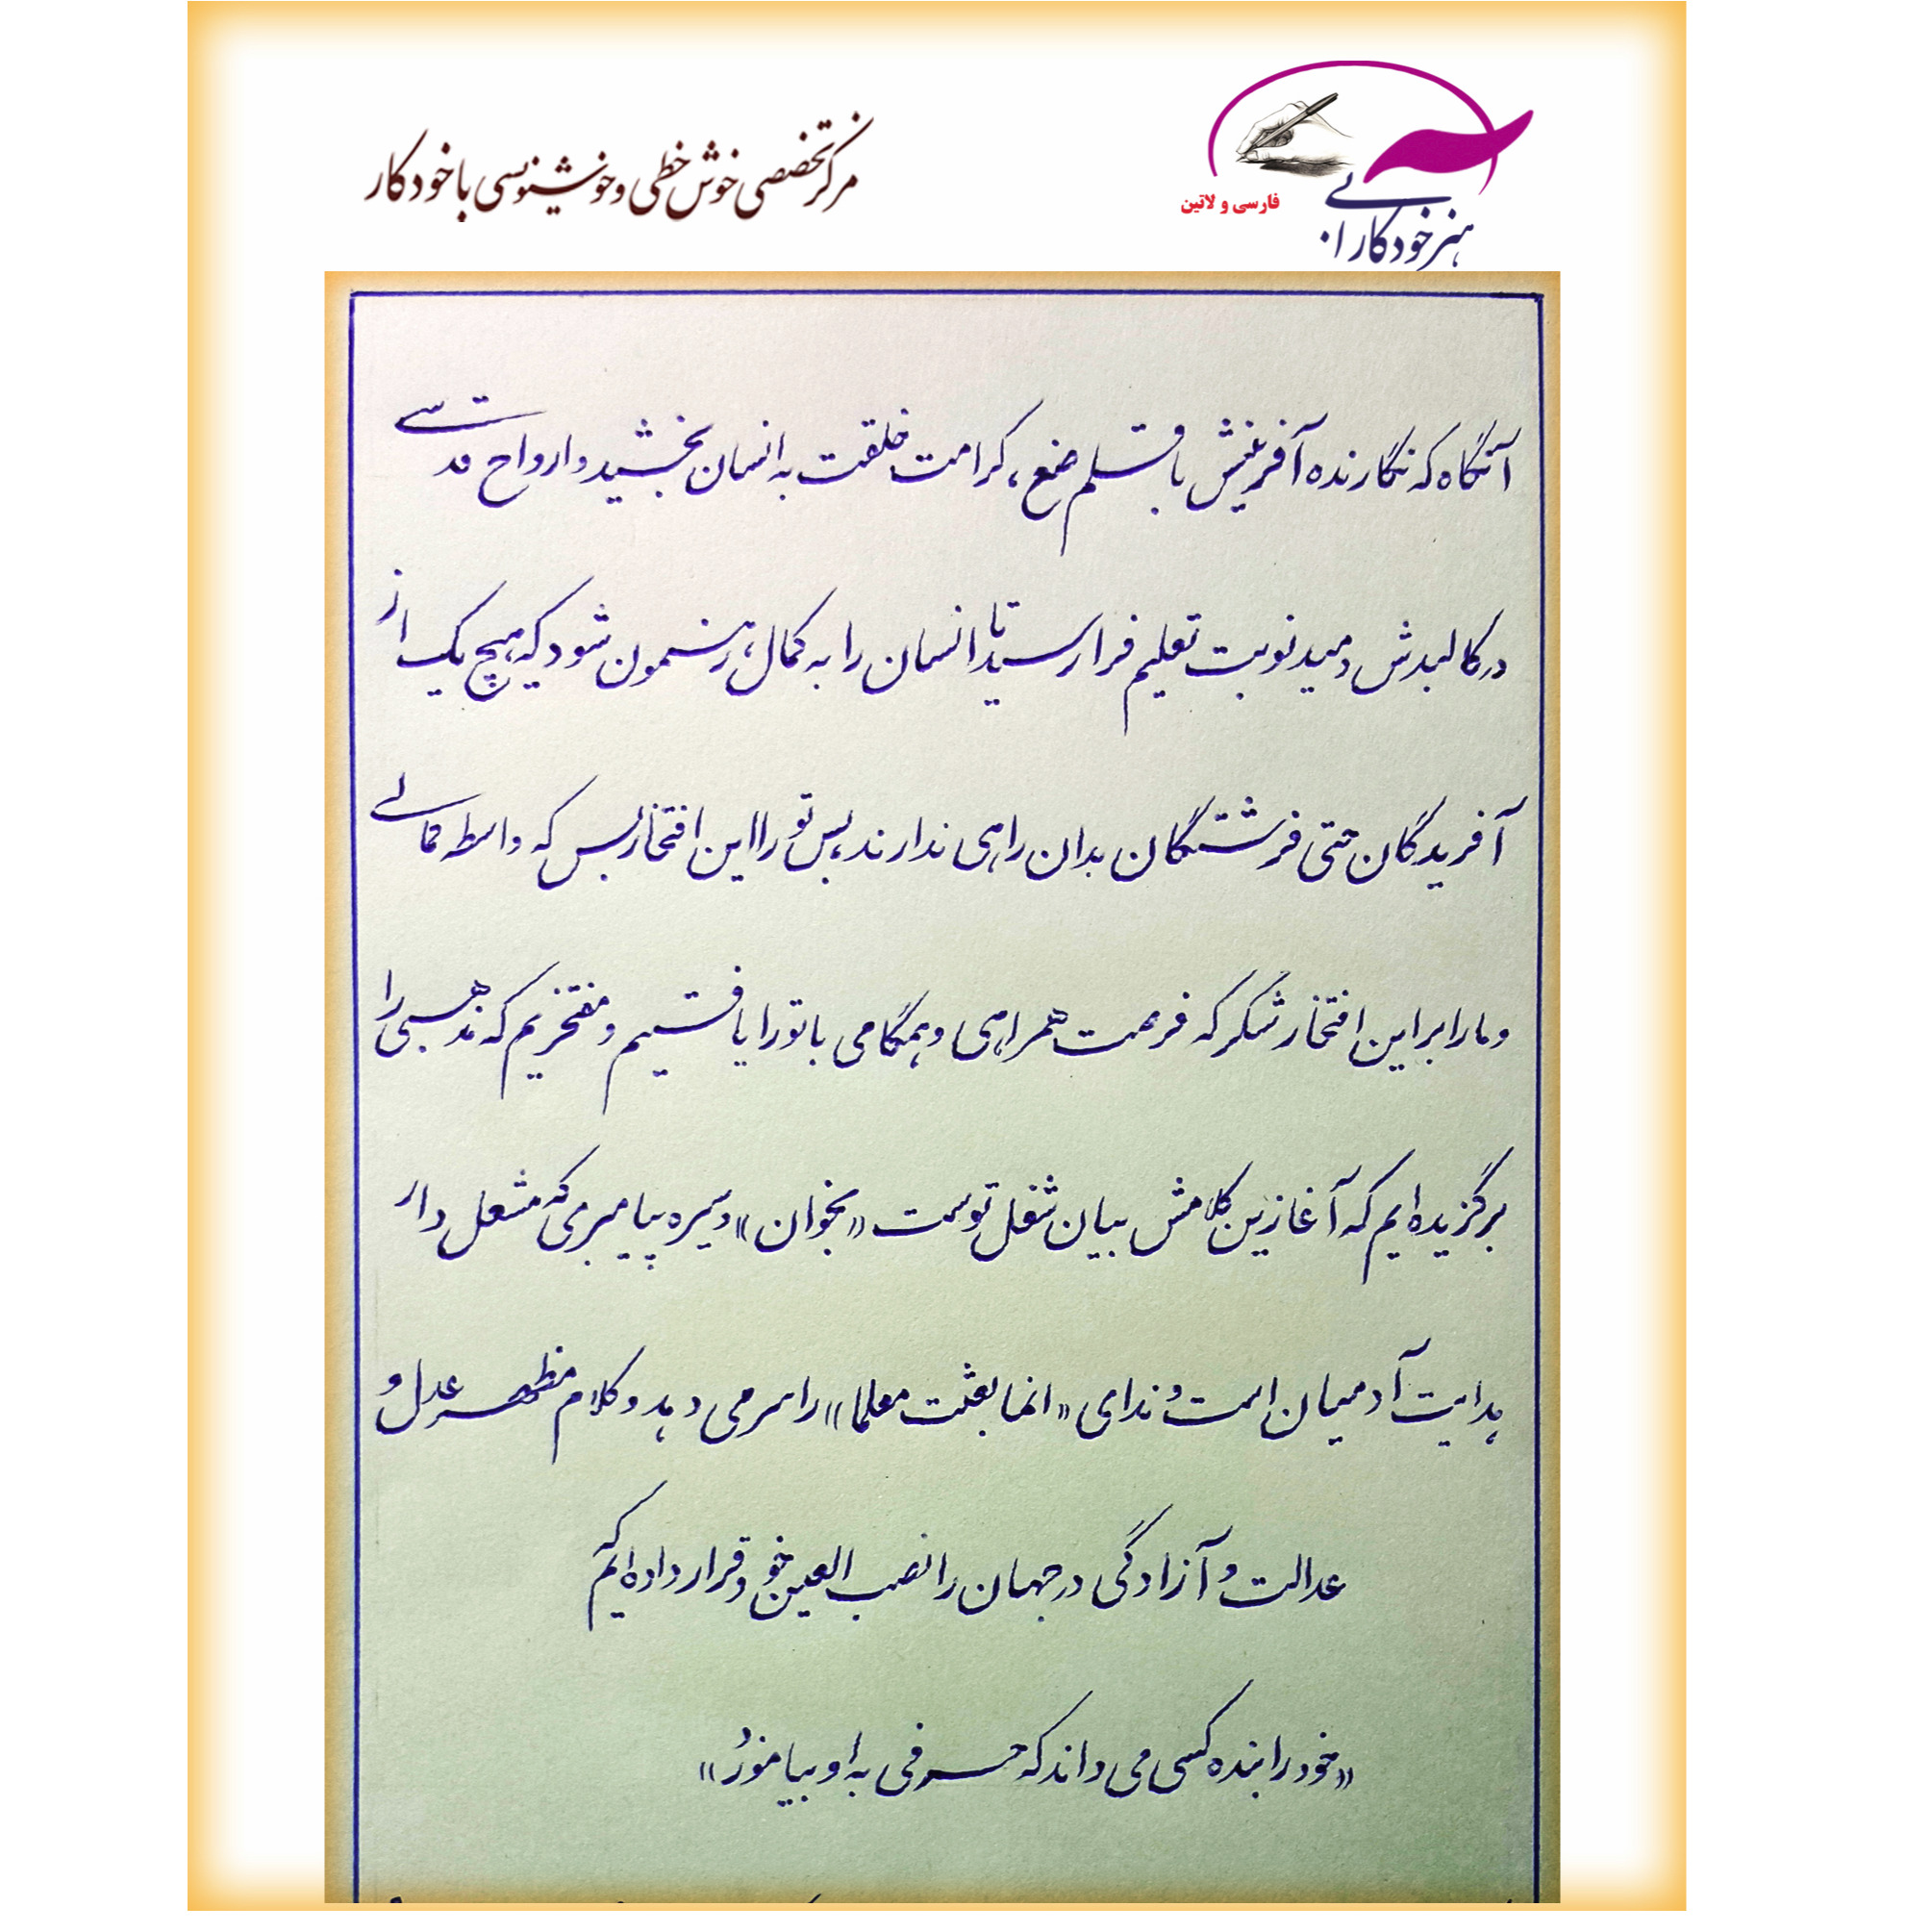 مرکز تخصصی خوش خطی و خوشنویسی با خودکار
فارسی و لاتین
آنگاه که نگارنده آفرینش با قلم صنع، کرامت خلقت به انسان بخشید و ارواح قدسی
در کالبدش دمید نوبت تعلیم فرا رسید تا انسان را به کمال رهنمون شود که هیچ یک از
آفریدگان حتی فرشتگان بدان راهی ندارند، پس تو را این افتخار بس که واسطه کمالی
و ما را بر این افتخار شکر که فرصت همراهی و همگامی با تو را یافتیم و مفتخریم که مذهبی را
برگزیده ایم که آغازین کلامش بیان شغل توست «بخوان» و سیره پیامبری که مشعل دار
هدایت آدمیان است و ندای «انما بعثت معلما» را سر می دهد و کلام مظهر عدل و
عدالت و آزادگی در جهان را نصب العین خود قرار داده ایم که
«خود را بنده کسی می داند که حرفی به او بیاموزد»